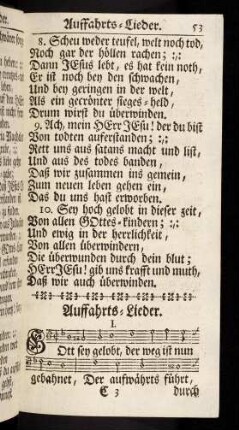 Auffahrts-Lieder. 53
8. Scheu weder teufel, welt noch tod,
Noch gar der höllen rachen; :,:
Dann JEsus lebt, es hat kein noth,
Er ist noch bey den schwachen,
Und bey geringen in der welt,
Als ein gecrönter sieges-held,
Drum wirst du überwinden.
9. Ach, mein HErr JEsu! der du bist
Von todten auferstanden; :,:
Rett uns aus satans macht und list,
Und aus des todes banden,
Daß wir zusammen ins gemein,
Zum neuen leben gehen ein,
Das du uns hast erworben.
10. Sey hoch gelobt in dieser zeit,
Von allen GOttes-kindern; :,:
Und ewig in der herrlichkeit,
Von allen überwindern,
Die überwunden durch dein blut;
HErr JEsu! gib uns krafft und muth,
Daß wir auch überwinden.
Auffahrts-Lieder.
I.
GOtt sey gelobt, der weg ist nun
gebahnet, Der aufwährts führt,
C 3 durch